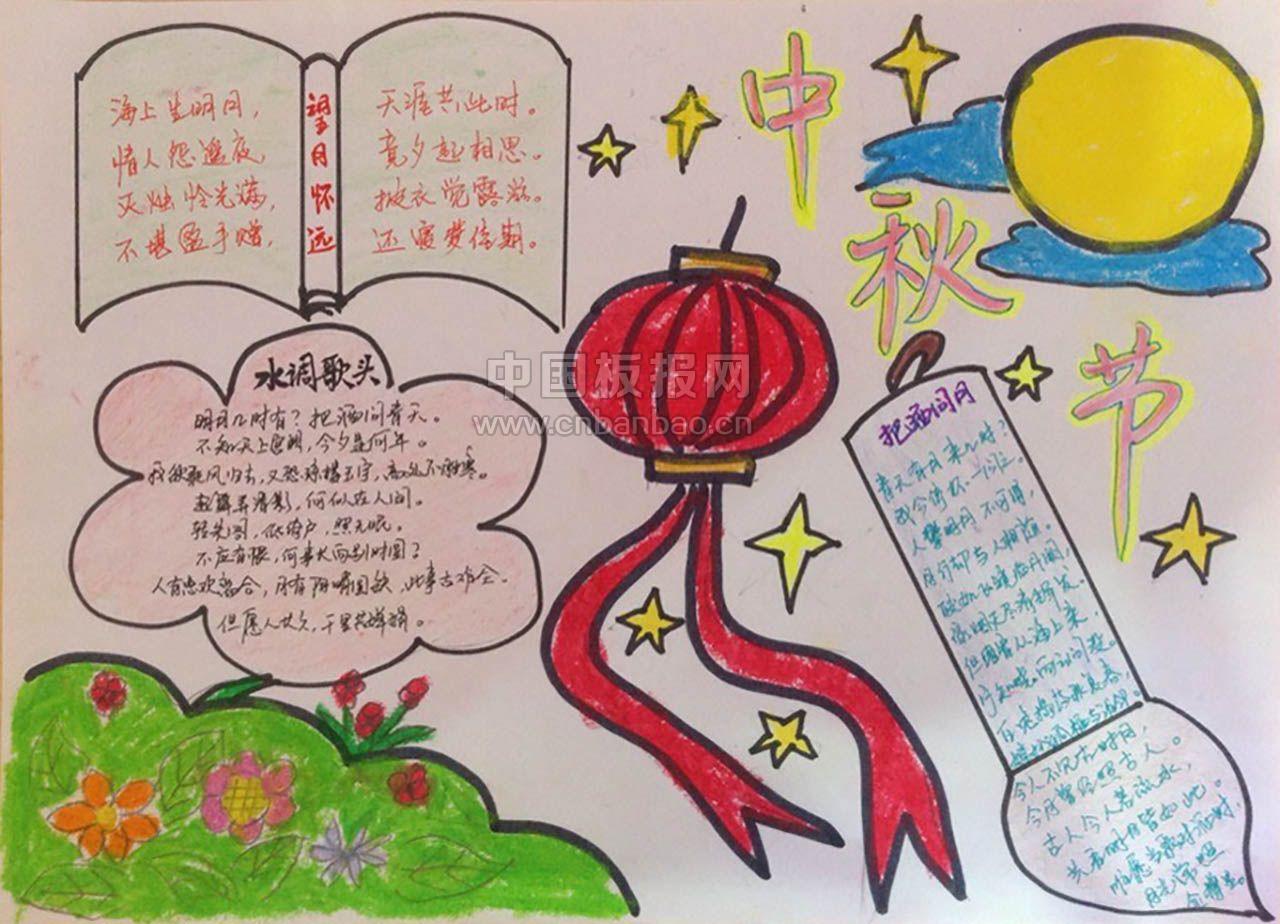 中秋节
海上生明月,
情人怨遥夜
灭烛怜光满,
不堪盈手赠,
望月怀远
天涯共此时。
竟夕起相思。
披衣觉露滋。
还寝梦佳期。
水调歌头
明月几时有?把酒问青天。
不知天上宫阙,今夕是何年。
我欲乘风归去,又恐琼楼玉宇,高处不胜寒。
起舞弄清影,何似在人间。
转朱阁,低绮户,照无眠。
不应有恨,何事长向别时圆?
人有悲欢离合,月有阴晴圆缺,此事古难全。
但愿人长久,千里共婵娟。
中国板报网
www.cnbanbao.cn
把酒问月
青天有月来几时?
我今停杯一问之。
人攀明月不可得,
月行却与人相随。
皎如飞镜临丹阙,
绿烟灭尽清辉发。
但见宵从海上来,
宁知晓向云间没。
白兔捣药秋复春,
嫦娥孤栖与谁邻。
今人不见古时月,
今月曾经照古人。
古人今人若流水,
共看明月皆如此。
唯愿当歌对酒时,
月光常照
金樽里。